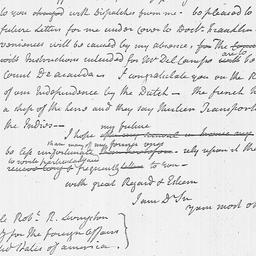 to you charged with Dispatches from me - be pleased to
future Letters for me under cover to Doctr. Franklin
veniences will be caused by my absence, for the
with Instructions intended for Mr. Del Campo will be
Count De aranda - I congratulate you on the R
of our Independence by the Dutch - The french h
a Ship of the Line and they say thirteen Transports
the Indies -
my future
I hope
may many of my foreign ones
be less unfortunate rely upon it tha
to write particularly and
frequently to you -
with great Regard & Esteem
I am Dr Sir
Your most o
le Robt. R. Livingston
y for the foreign affairs
ted States of america.